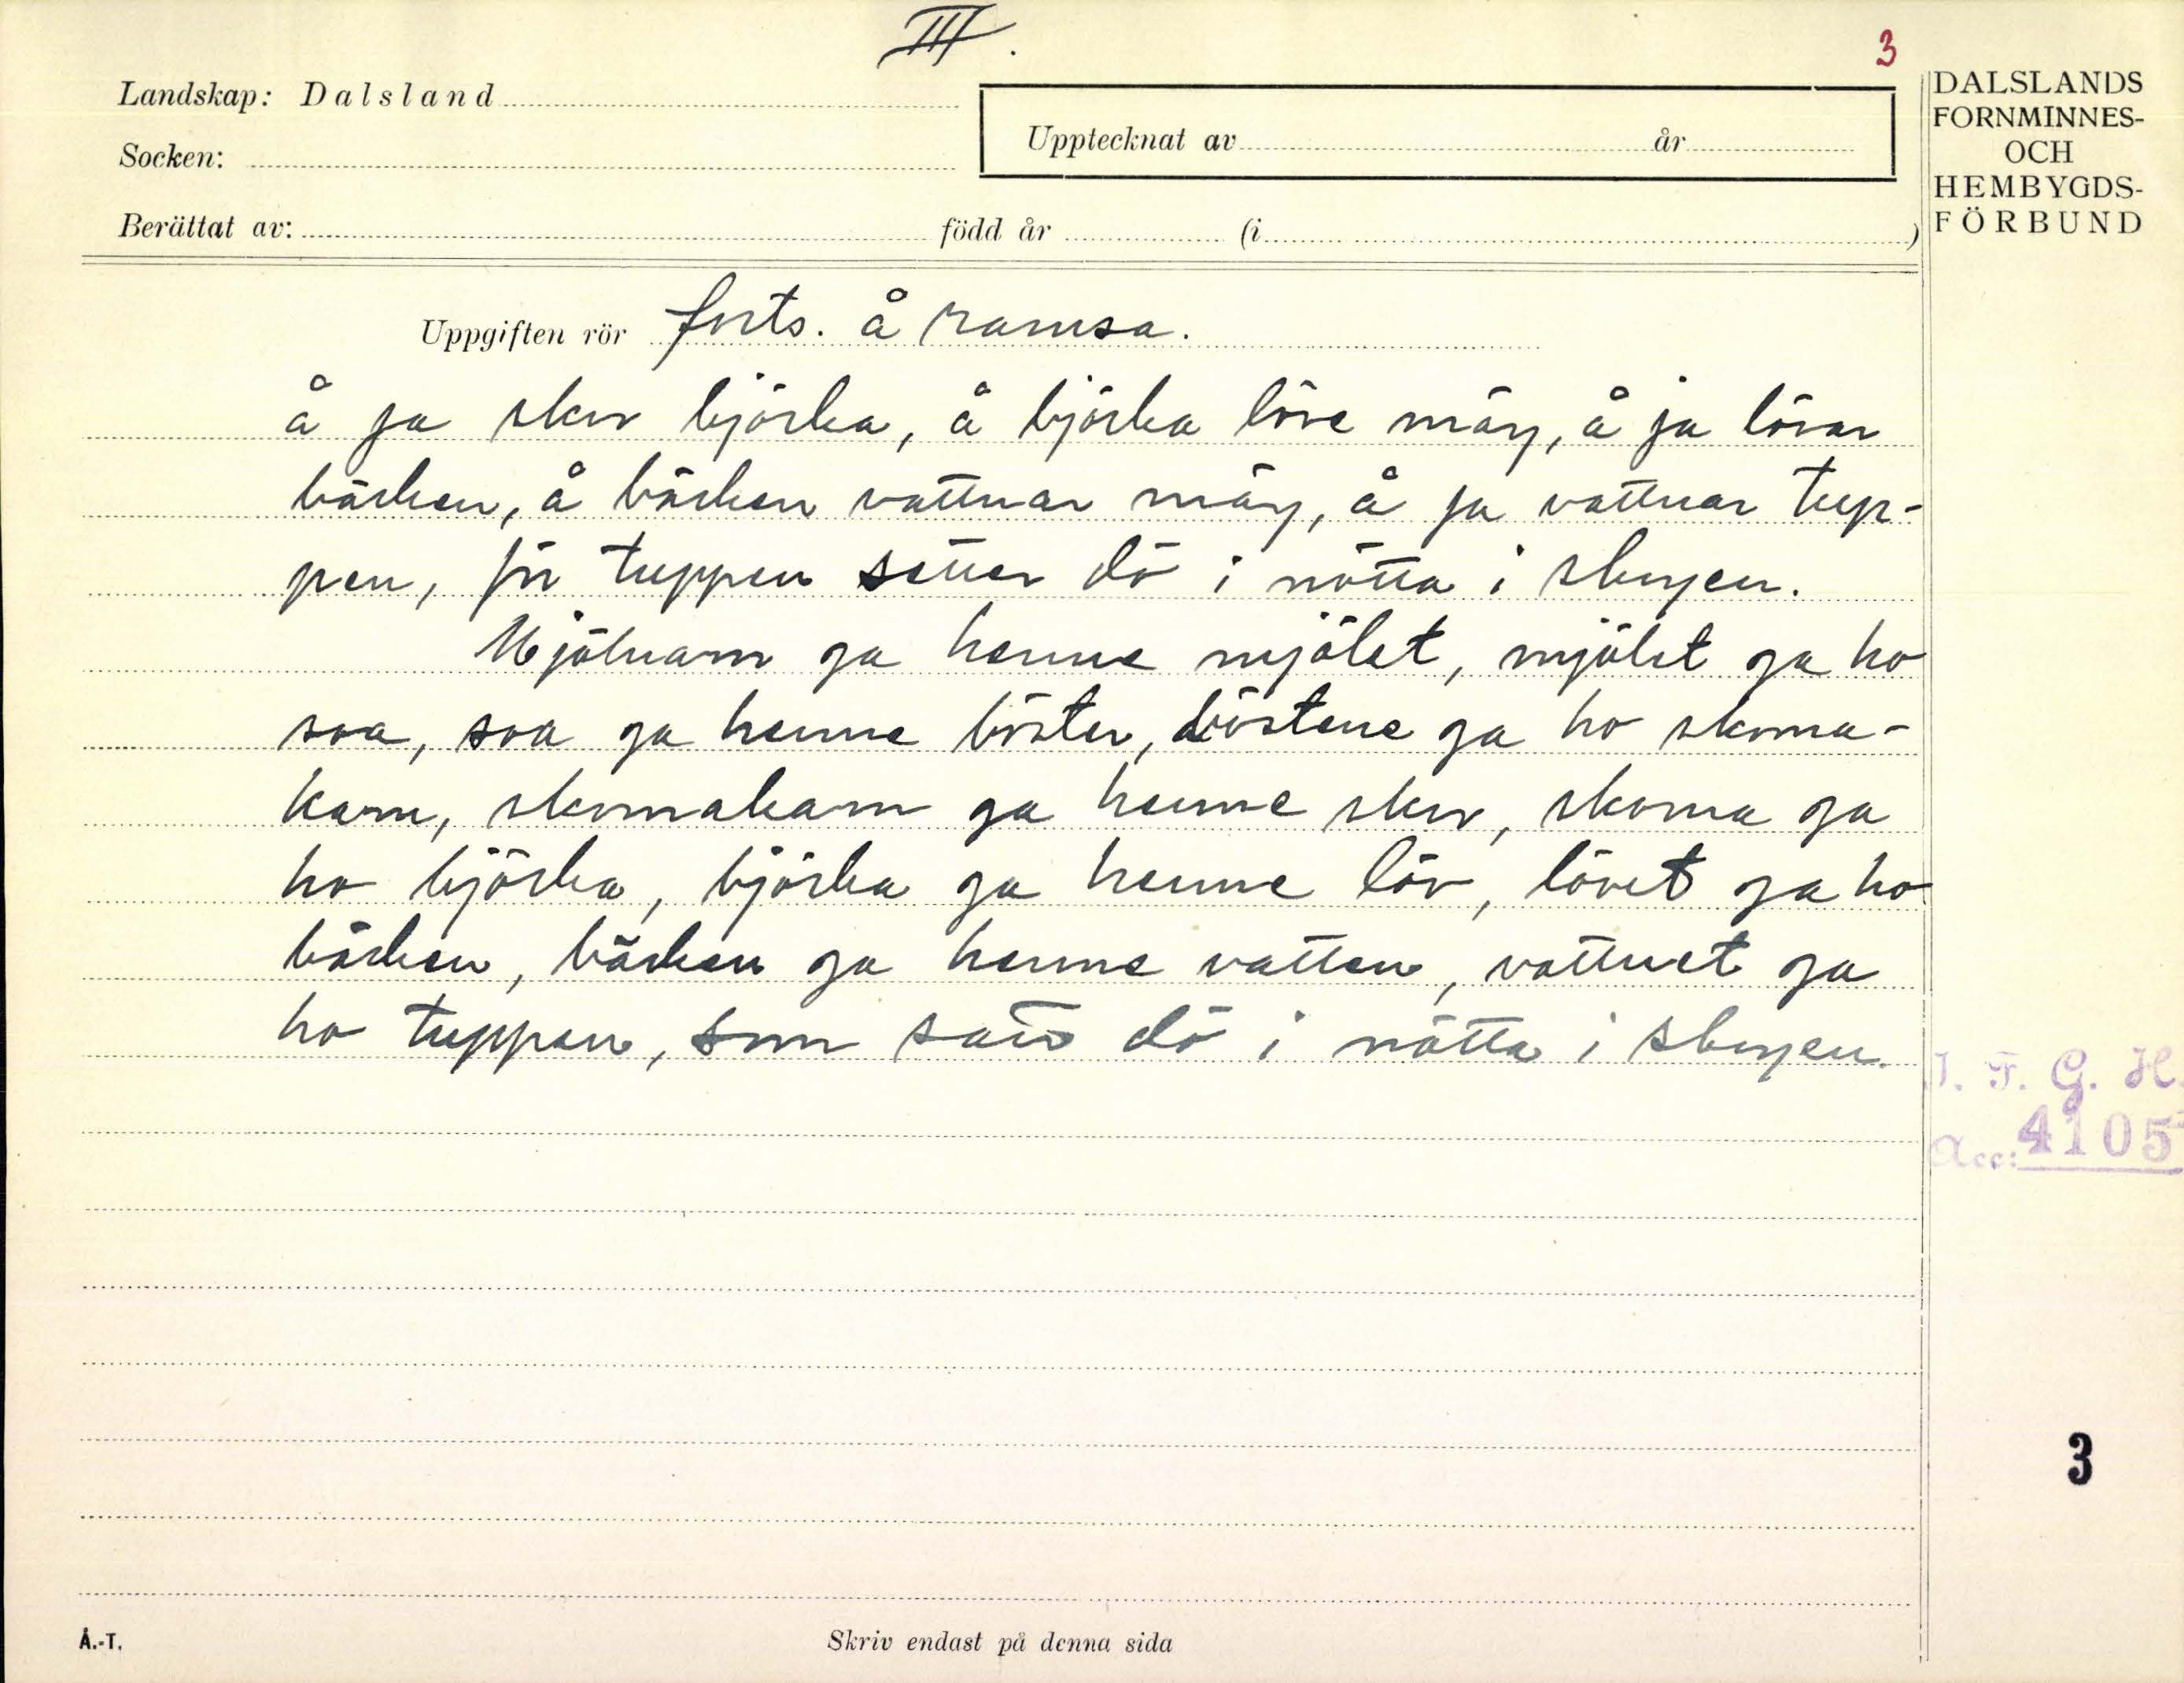 III.
3
Landskap: Dalsland
Socken:
Upptecknat av år
Berättat av: född år (i )
DALSLANDS
FORNMINNES-
OCH
HEMBYGDS-
FÖRBUND
Uppgiften rör forts. å ramsa.
å ja skor björka, å björka löve mäj, å ja lövar
bäcken, å bäcken vattnar mäj, å ja vattnar tup-
pen, för tuppen sitter dö i nötta i skojen.
Mjölnarn ga henne mjölet, mjölet ga ho
soa, soa ga henne börster, börstene ga ho skoma-
karn, skomakarn ga henne skor, skorna ga
ho björka, björka ga henne löv, lövet ga ho
bäcken, bäcken ga henne vatten, vattnet ga
ho tuppen, som satt dö i nötta i skojen.
I. F. G. H.
Acc: 4105
3
Å.-T.
Skriv endast på denna sida